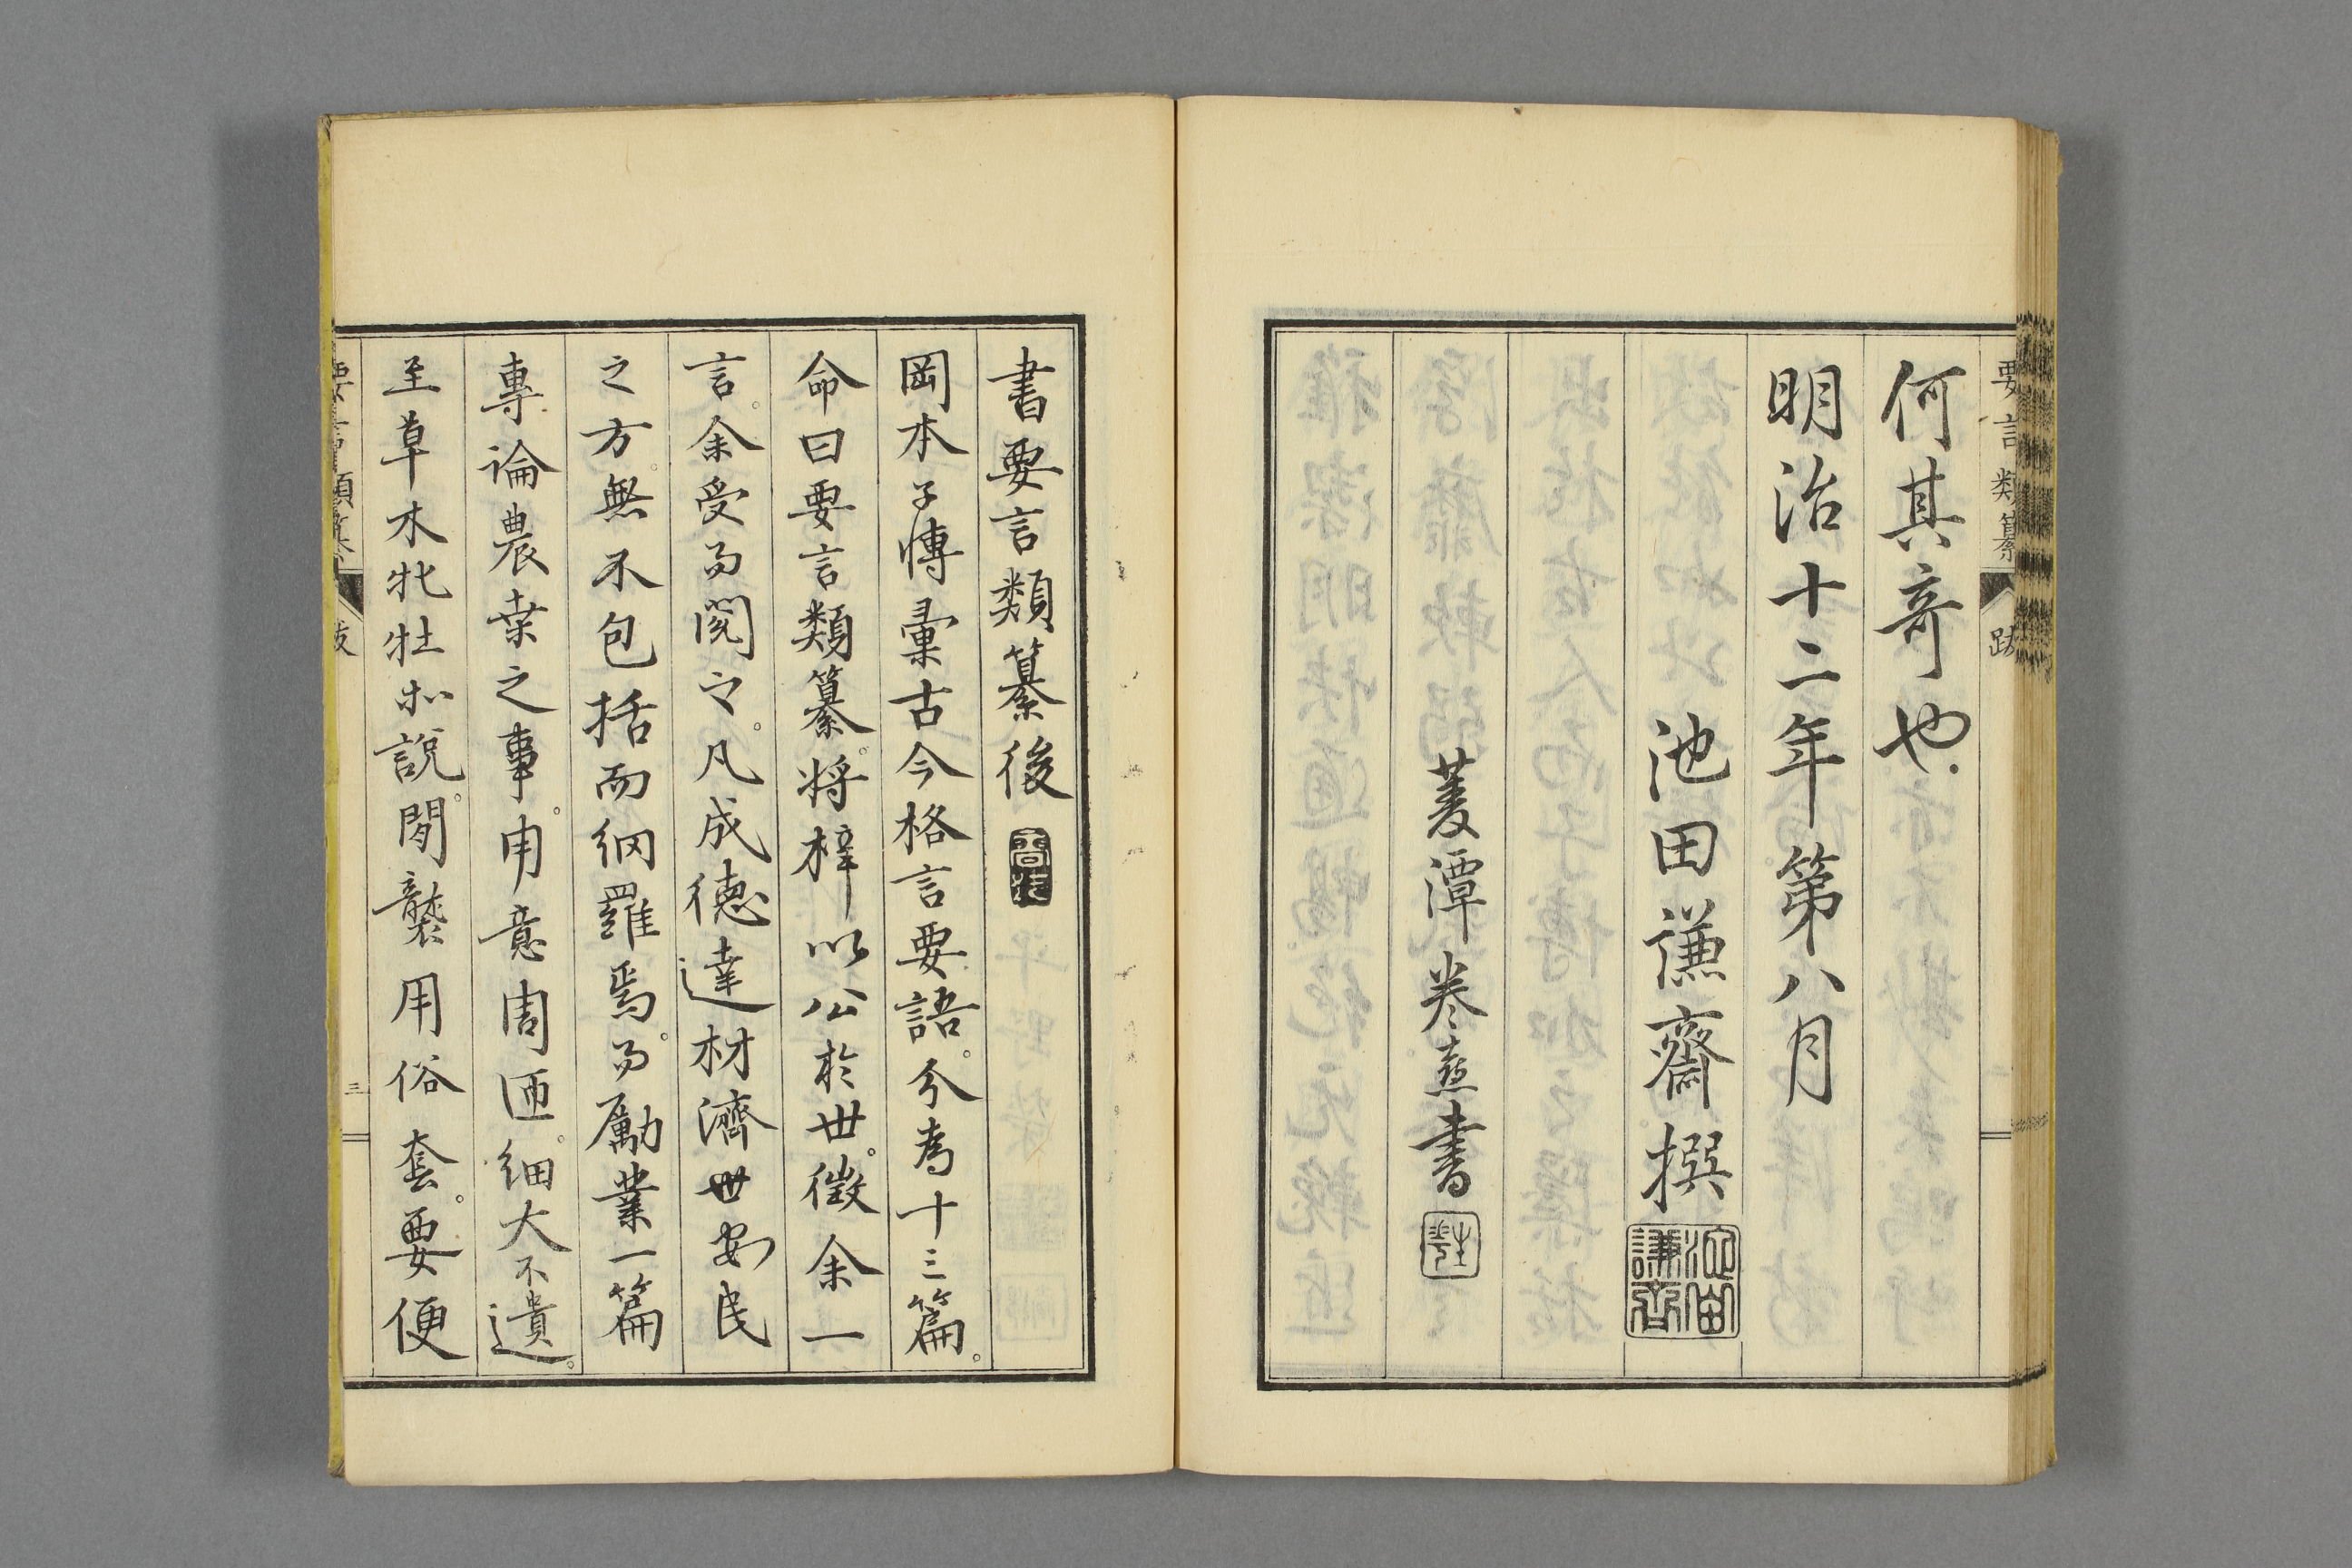 要言類纂
跋
何其奇也
明治十二年第八月
池田謙齋撰
池田謙齋
菱潭卷熹書
書要言類纂後
岡本子慱彙古今格言要語。分為十三篇。
命曰要言類纂。将梓以公於世。徵余一
言。余受而閱之。凡成德達材濟世安民
之方。無不包括而網羅焉。而勵業一篇
專論農桒之事。用意周匝。細大不遺。
至草木牝牡亦說。間襲用俗套。要便
三